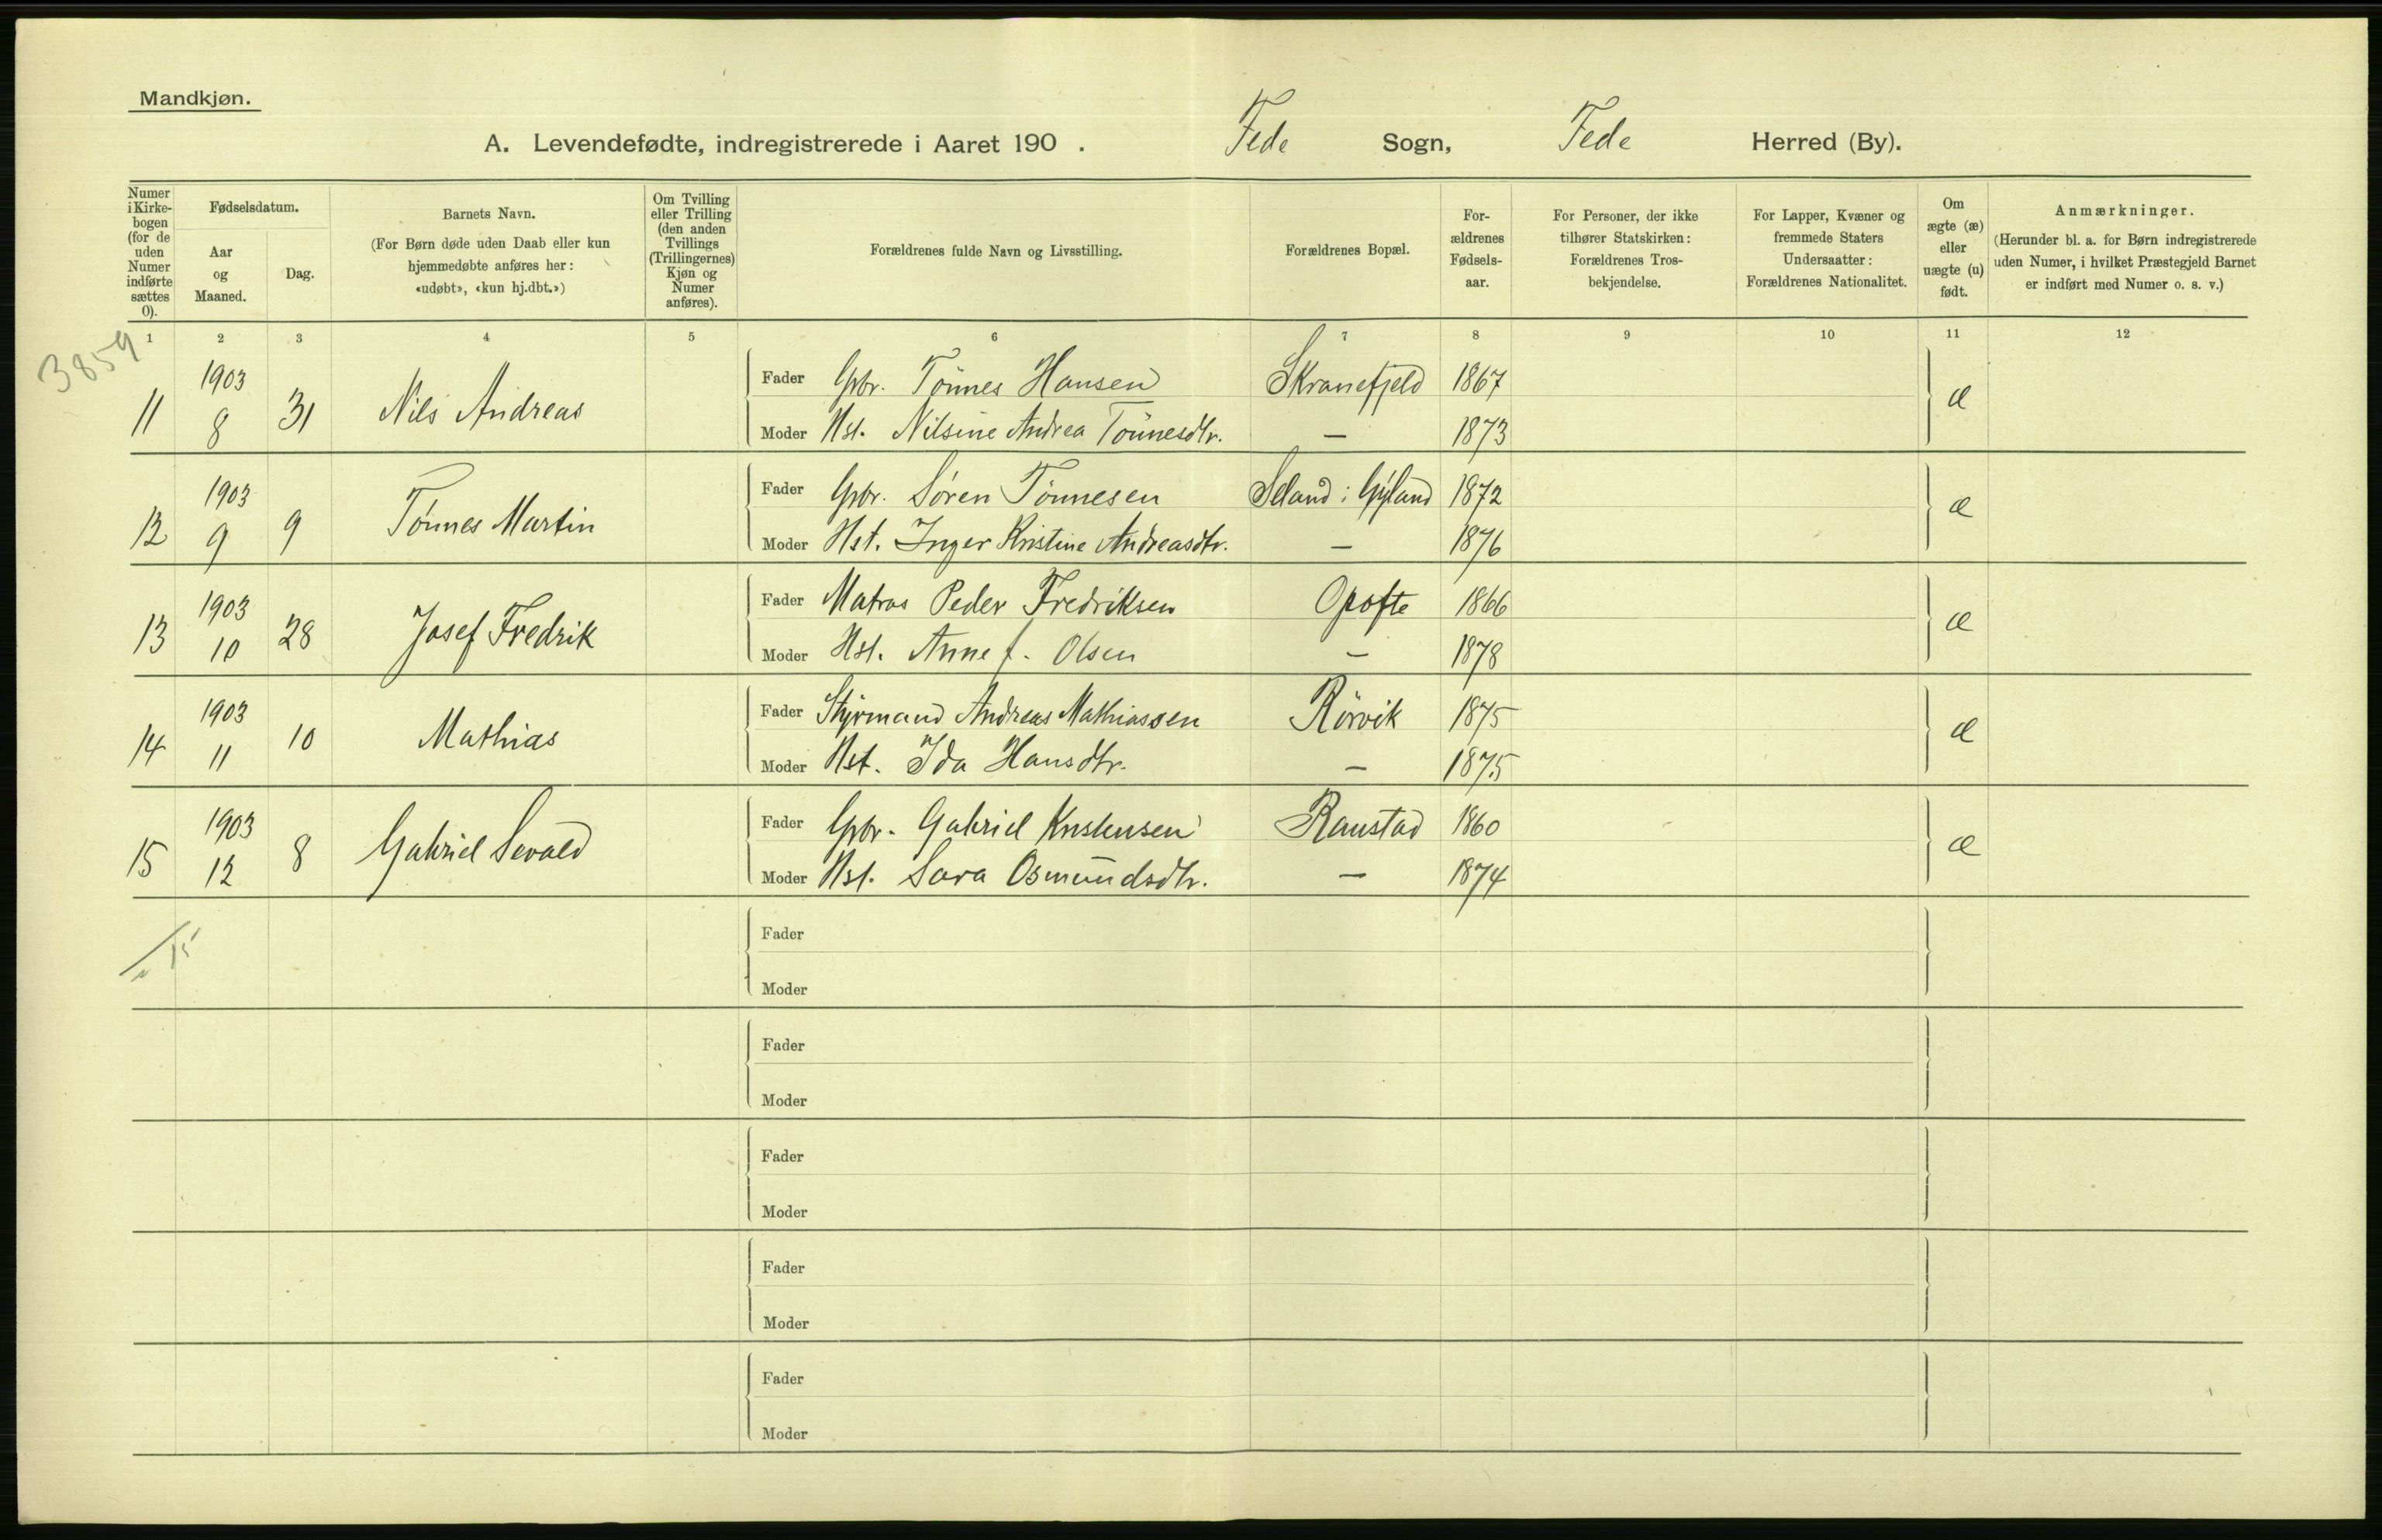 Mandkjøn.
A. Levendefødte, indregistrerede i Aaret 190 . Fede Sogn, Fede Herred (By).
Numer i Kirke-bogen (for de uden Numer indførte sættes 0).
Fødselsdatum.
Aar og Maaned.
Dag.
Barnets Navn.
(For Børn døde uden Daab eller kun
hjemmedøbte anføres her:
«udøbt», «kun hj.dbt.»)
Om Tvilling
eller Trilling
(den anden
Tvillings
(Trillingernes)
Kjøn og
Numer
anføres).
Forældrenes fulde Navn og Livsstilling.
Forældrenes Bopæl.
For-
ældrenes
Fødsels-
aar.
For Personer, der ikke
tilhører Statskirken:
Forældrenes Tros-
bekjendelse.
For Lapper, Kvæner og
fremmede Staters
Undersaatter:
Forældrenes Nationalitet.
Om
ægte (æ)
eller
uægte (u)
født.
Anmærkninger.
(Herunder bl. a. for Børn indregistrerede
uden Numer, i hvilket Præstegjeld Barnet
er indført med Numer o. s. v.)
1 2 3 4 5 6 7 8 9 10 11 12
3859
11 1903 8 31 Nils Andreas
Fader Gbr. Tönnes Hansen Skranefjeld 1867 æ
Moder Hst. Nilsine Andrea Tönnesdtr. — 1873
12 1903 9 9 Tönnes Martin
Fader Gbr. Søren Tönnesen Seland i Gyland 1872 æ
Moder Hst. Inger Kristine Andreasdtr. — 1876
13 1903 10 28 Josef Fredrik
Fader Matros Peder Fredriksen Opofte 1866 æ
Moder Hst. Anne f. Olsen — 1878
14 1903 11 10 Mathias
Fader Styrmand Andreas Mathiassen Rörvik 1875 æ
Moder Hst. Ida Hansdtr. — 1875
15 1903 12 8 Gabriel Sevald
Fader Gbr. Gabriel Kristensen Raustad 1860 æ
Moder Hst. Sara Osmundsdtr. — 1874
15
Fader
Moder
Fader
Moder
Fader
Moder
Fader
Moder
Fader
Moder